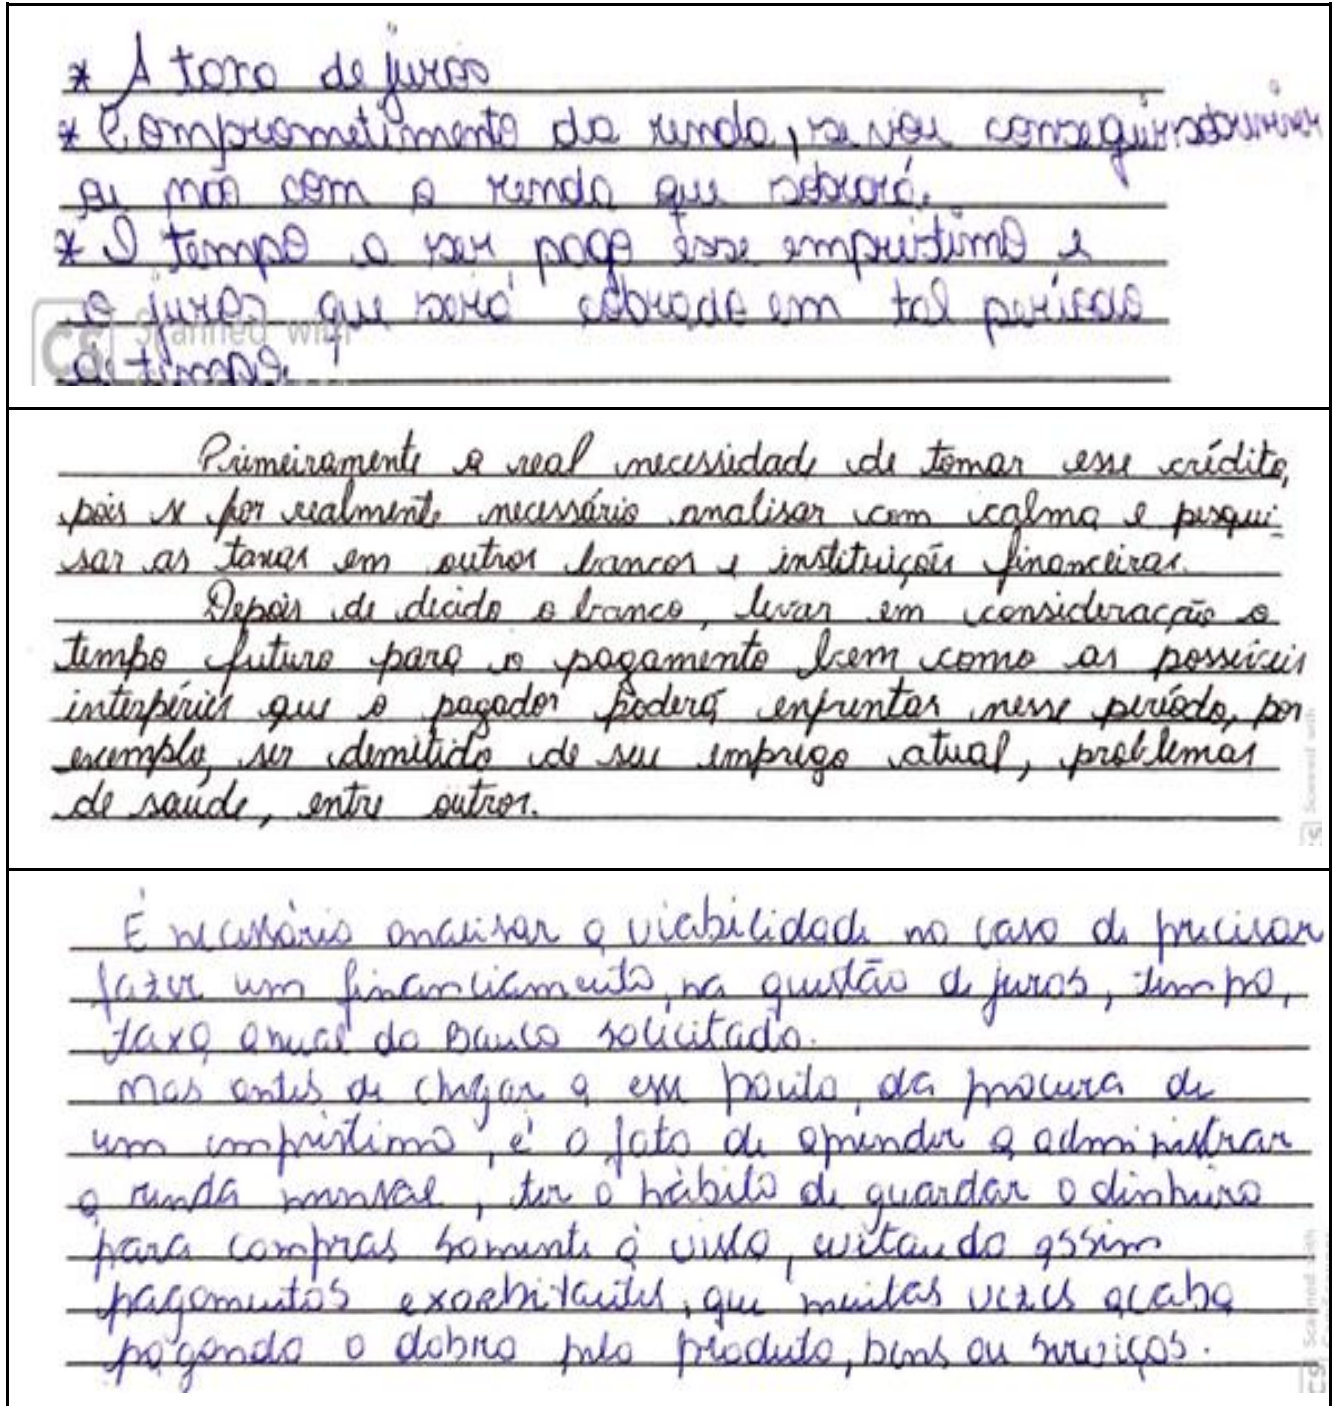 * A taxa de juros
* Comprometimento da renda, se vou conseguir sobreviver
ou não com a renda que sobrará.
* O tempo a ser pago esse empréstimo e
o juros que será cobrado em tal período
de tempo.
CS Scanned with
Primeiramente a real necessidade de tomar esse crédito,
pois se for realmente necessário analisar com calma e pesqui-
sar as taxas em outros bancos e instituições financeiras.
Depois de decido o banco, levar em consideração o
tempo futuro para o pagamento bem como as possíveis
interpéries que o pagador poderá enfrentar nesse período, por
exemplo, ser demitido de seu emprego atual, problemas
de saúde, entre outros.
CS Scanned with
É necessário analisar a viabilidade no caso de precisar
fazer um financiamento, na questão de juros, tempo,
taxa anual do Banco solicitado.
Mas antes de chegar a esse ponto, da procura de
um empréstimo, é o fato de aprender a administrar
a renda mensal, ter o hábito de guardar o dinheiro
para compras somente à vista, evitando assim
pagamentos exorbitantes, que muitas vezes acaba
pagando o dobro pelo produto, bens ou serviços.
CS Scanned with